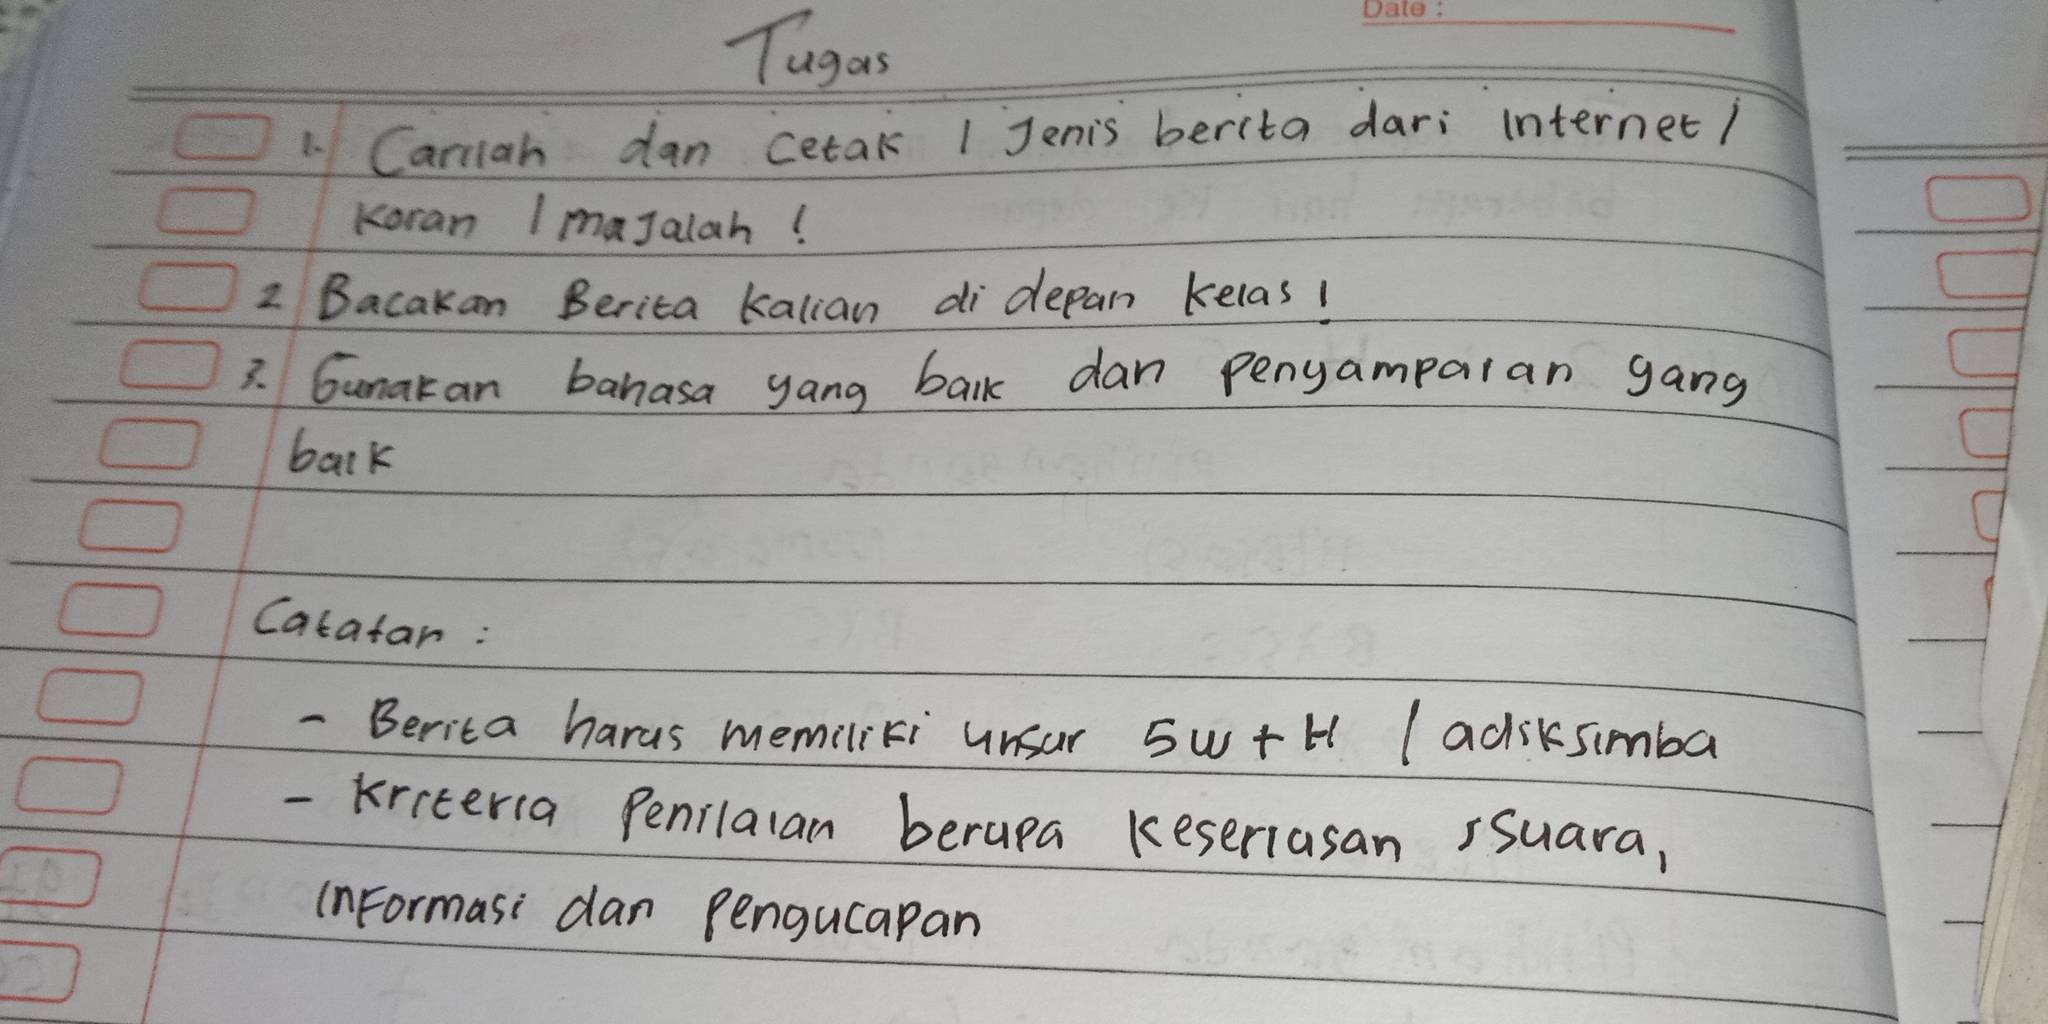 Date :
Tugas
1. Carilah dan cetak 1 Jenis berita dari internet /
Koran / maJalah !
2 Bacakan Berita Kalian di depan Kelas !
3. Gunakan bahasa yang baik dan penyampaian yang
baik
Catatan :
- Berita harus memiliki unsur 5w + H / adiksimba
- Kriteria Penilaian berupa Keseriusan , Suara,
informasi dan pengucapan